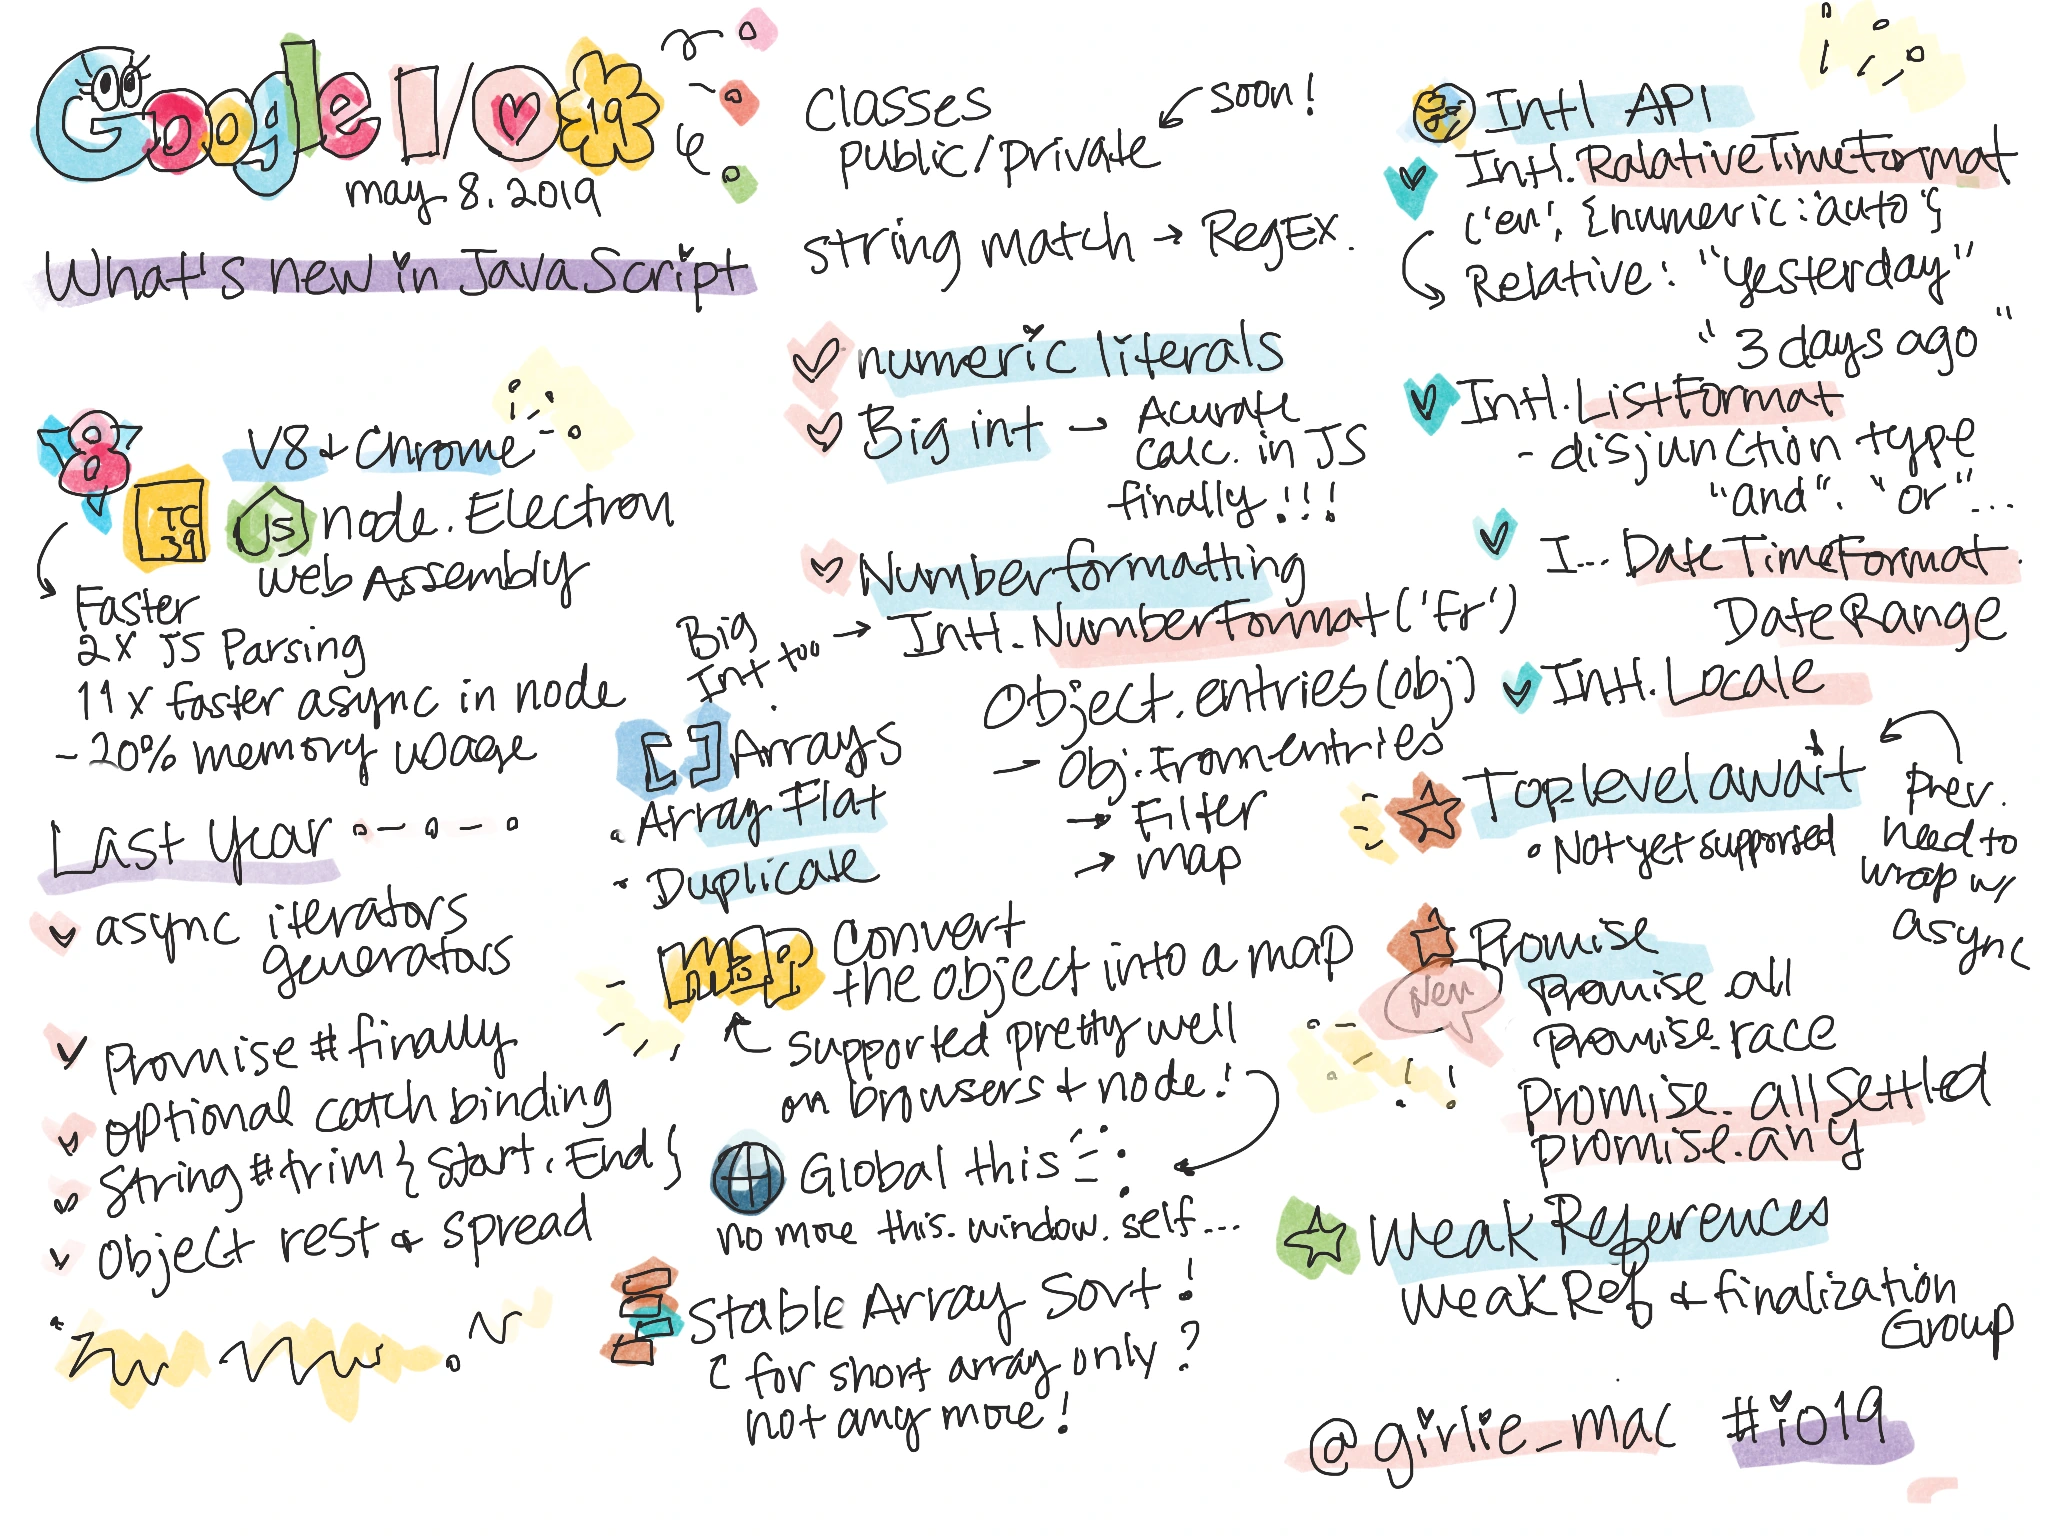 Google I/O 19
may 8. 2019
What's new in JavaScript
V8 & Chrome
TC
39
JS
node. Electron
Web Assembly
Faster
2x JS Parsing
11x faster async in node
- 20% memory usage
Last Year
async iterators
generators
Promise # finally
optional catch binding
String # trim { Start, End }
Object rest & spread
Classes
public/private
soon!
string match → RegEx.
numeric literals
Big int → Acurate
calc. in JS
finally!!!
Number formatting
Big
Int too → Intl. NumberFormat ('fr')
[ ] Arrays
Array Flat
Duplicate
Object.entries(obj)
→ Obj. fromentries
→ Filter
→ map
map
Convert
the object into a map
supported pretty well
on browsers + node!
Global this
no more this. window. self...
Stable Array Sort!
for short array only?
not any more!
Intl API
Intl. RalativeTimeFormat
('en', {numeric: 'auto'}
Relative: "Yesterday"
"3 days ago"
Intl. ListFormat
- disjunction type
"and". "or"...
I... DateTimeFormat.
DateRange
Intl. Locale
Top level await
• Not yet supported
Prev.
need to
wrap w/
async
Promise
New
Promise.all
Promise.race
Promise.allSettled
Promise.any
Weak References
WeakRef & finalization
Group
@girlie_mac #io19